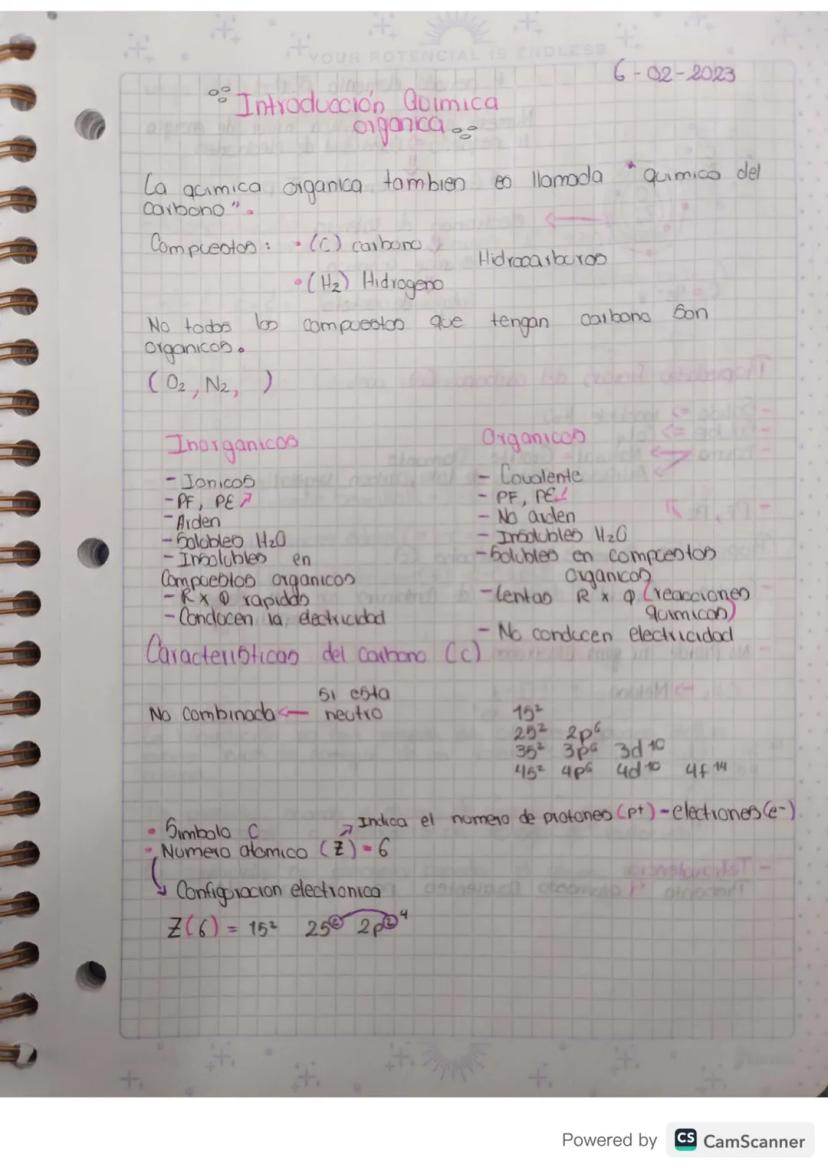 YOUR POTENCIAL IS ENDLESS
6-02-2023
Introducción Quimica
organica
La quimica organica tambien es llamada "quimica del
carbono".
Compuestos: • (C) carbono
Hidrocarburos
• (H2) Hidrogeno
No todos los compuestos que tengan carbono son
organicos.
(O2, N2, )
Inorganicos
- Ionicos
- PF, PE ↗
- Arden
- Solubles H2O
- Insolubles en
Compuestos organicos
- R x Q rapidas
- Conducen la electricidad
Organicos
- Covalente
- PF, PE ↙
- No arden
- Insolubles H2O
- Solubles en compuestos
organicos
- Lentas R x Q (reacciones
quimicas)
- No conducen electricidad
Caracteristicas del carbono (C)
si esta
No combinada ← neutro
1s²
2s² 2p⁶
3s² 3p⁶ 3d¹⁰
4s² 4p⁶ 4d¹⁰ 4f¹⁴
↗ Indica el numero de protones (p+) - electrones (e-)
• Simbolo C
• Numero atomico (Z) = 6
↳ Configuracion electronica
Z(6) = 1s² 2s² 2p² ⁴
Powered by CS CamScanner